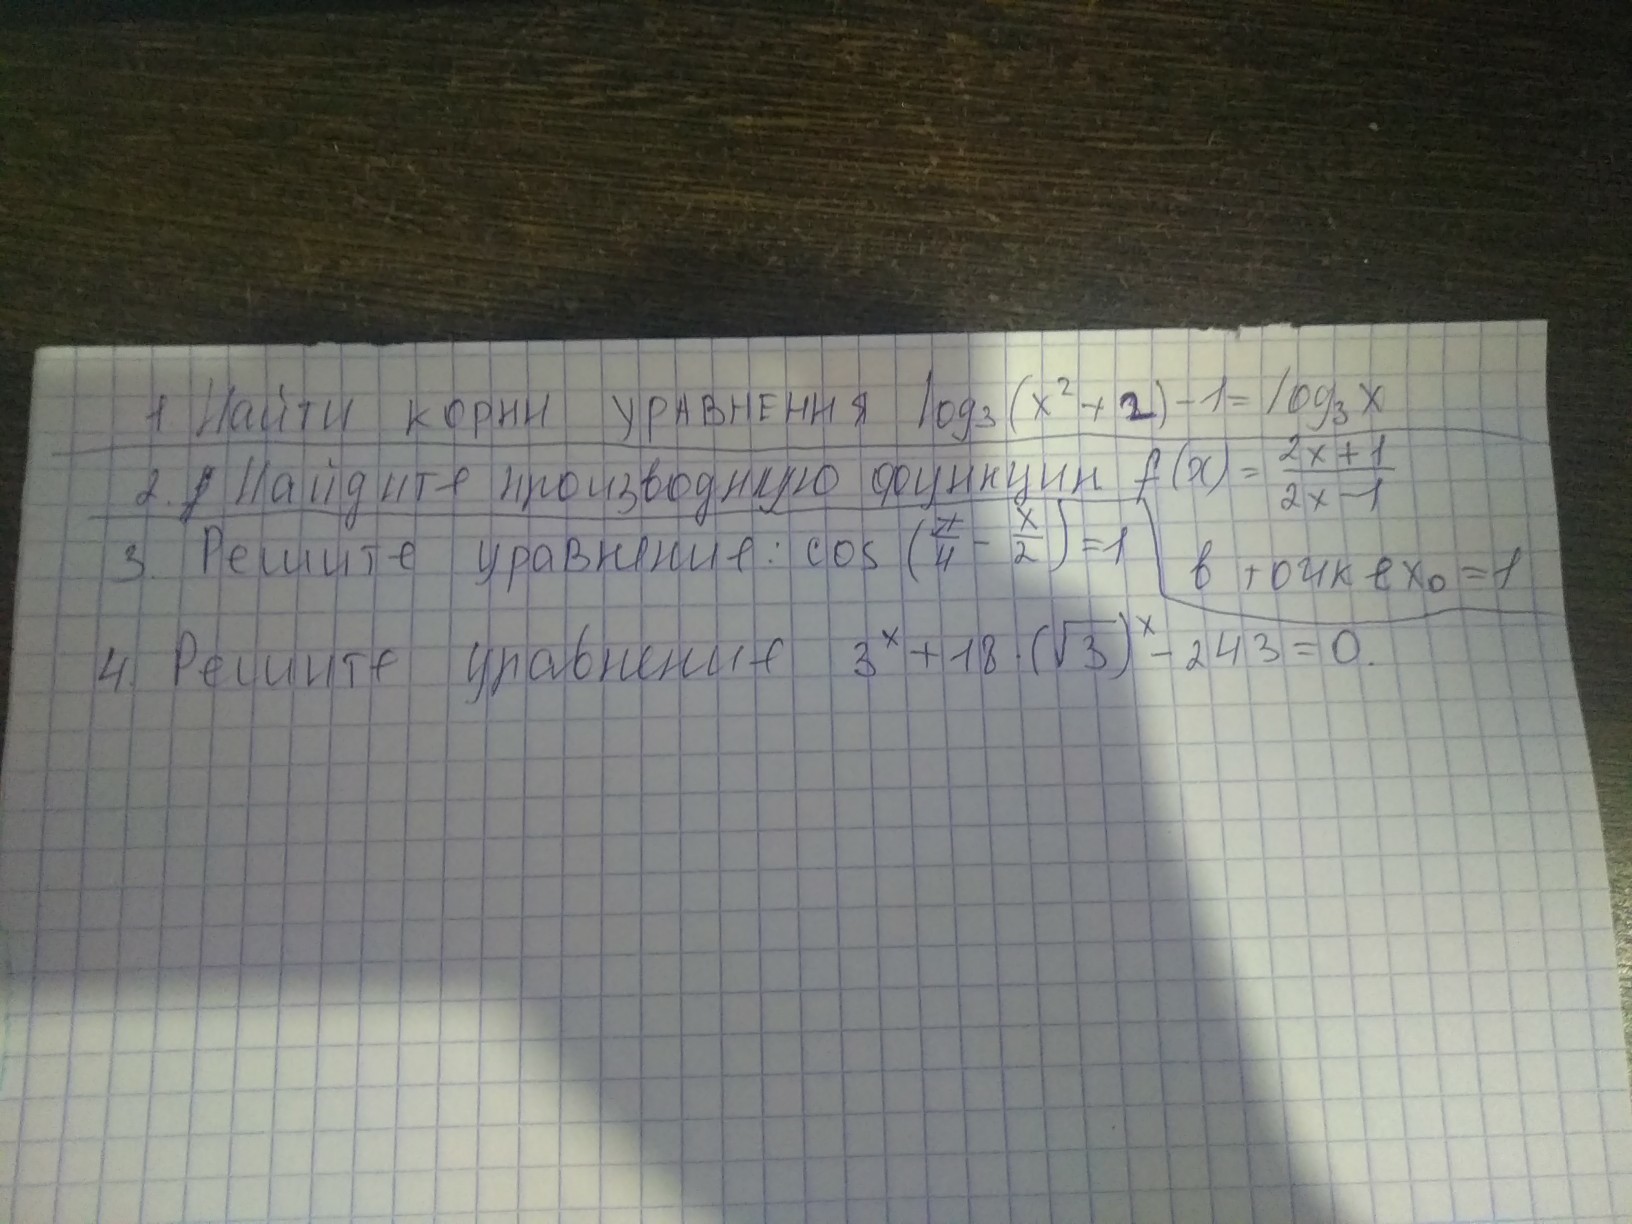 1 Найти корни уравнения log₃(x²+2)-1=log₃x
2. Найдите производную функции f(x)=\frac{2x+1}{2x-1}
в точке x₀=1
3. Решите уравнение: cos(\frac{π}{4}-\frac{x}{2})=1
4. Решите уравнение 3^x+18·(√3)^x-243=0.